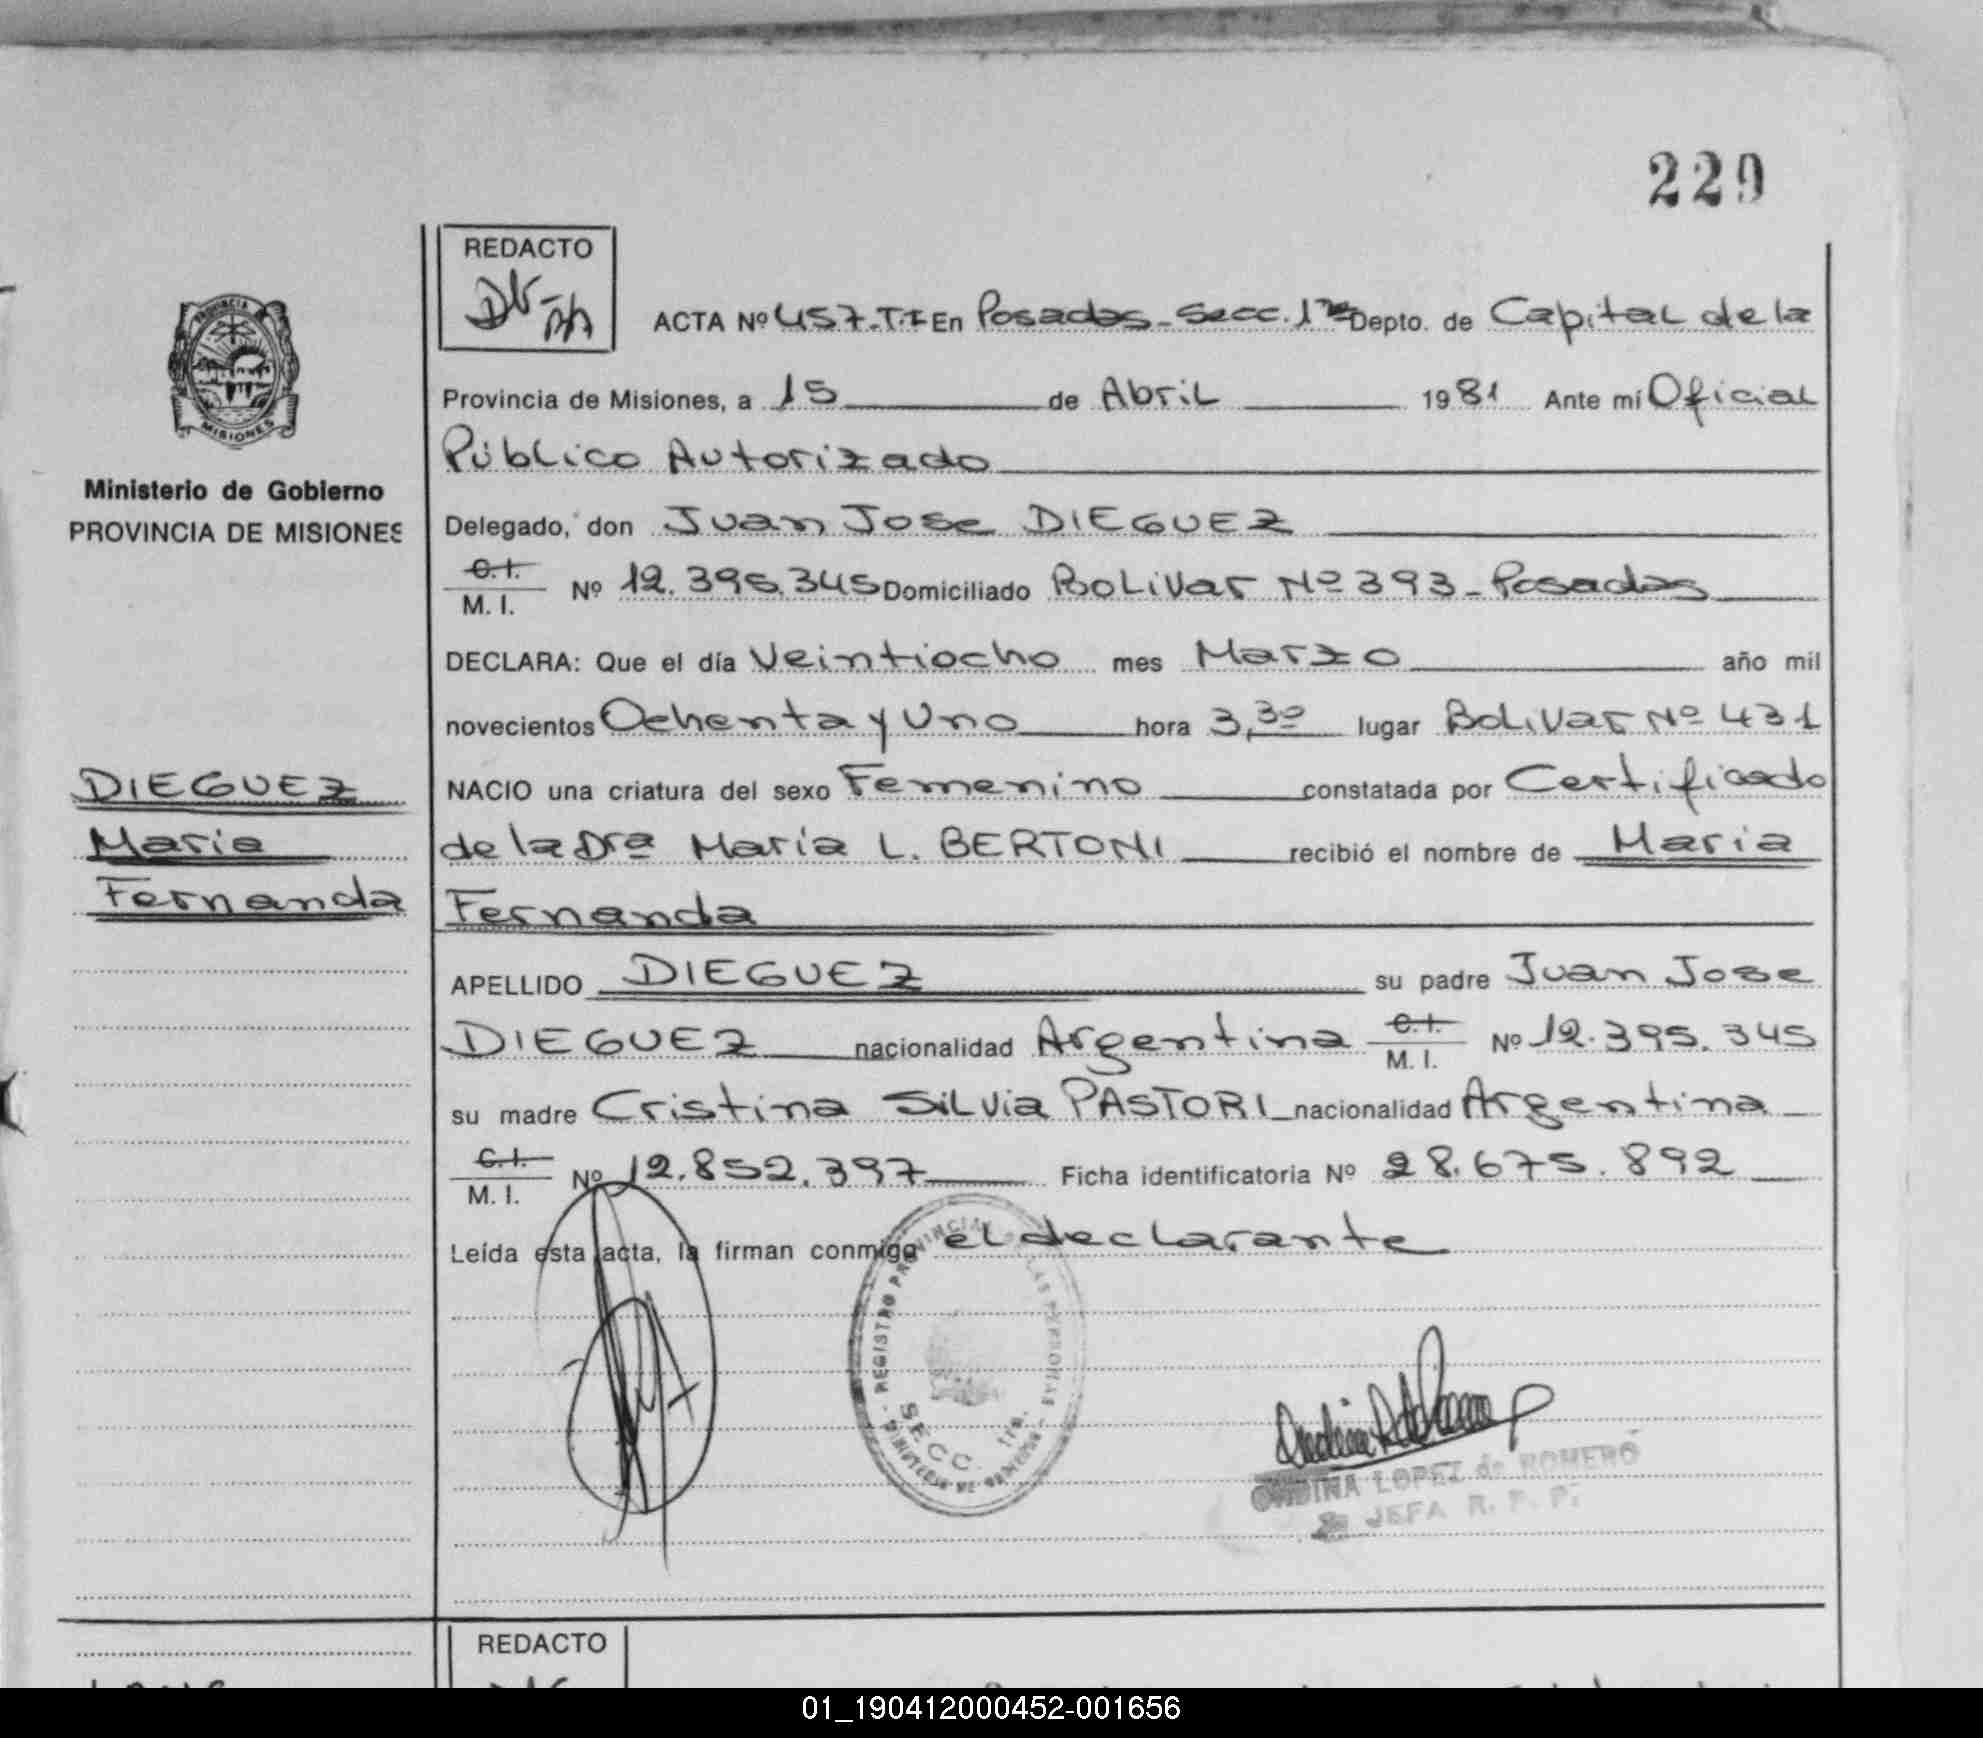 229
REDACTO
ACTA Nº 457.T.I En Posadas-Secc. 1ra Depto. de Capital de la
PROVINCIA
MISIONES
Provincia de Misiones, a 15 de Abril 1981 Ante mí Oficial
Público Autorizado
Ministerio de Gobierno
PROVINCIA DE MISIONES
Delegado, don Juan Jose DIEGUEZ
C.I.
M. I. Nº 12.395.345 Domiciliado Bolivar Nº 393-Posadas
DECLARA: Que el día Veintiocho mes Marzo año mil
novecientos Ochenta y Uno hora 3,30 lugar Bolivar Nº 431
NACIO una criatura del sexo Femenino constatada por Certificado
de la Dra María L. BERTONI recibió el nombre de Maria
Fernanda
DIEGUEZ
Maria
Fernanda
APELLIDO DIEGUEZ su padre Juan Jose
DIEGUEZ nacionalidad Argentina C.I. M. I. Nº 12.395.345
su madre Cristina Silvia PASTORI nacionalidad Argentina
C.I.
M. I. Nº 12.852.397 Ficha identificatoria Nº 28.675.892
Leída esta acta, la firman conmigo el declarante
REGISTRO PROVINCIAL LAS PERSONAS
SECC. 1ra.
MINISTERIO DE GOBIERNO
ONDINA LOPEZ de ROMERO
JEFA R. P. P.
REDACTO
01_190412000452-001656